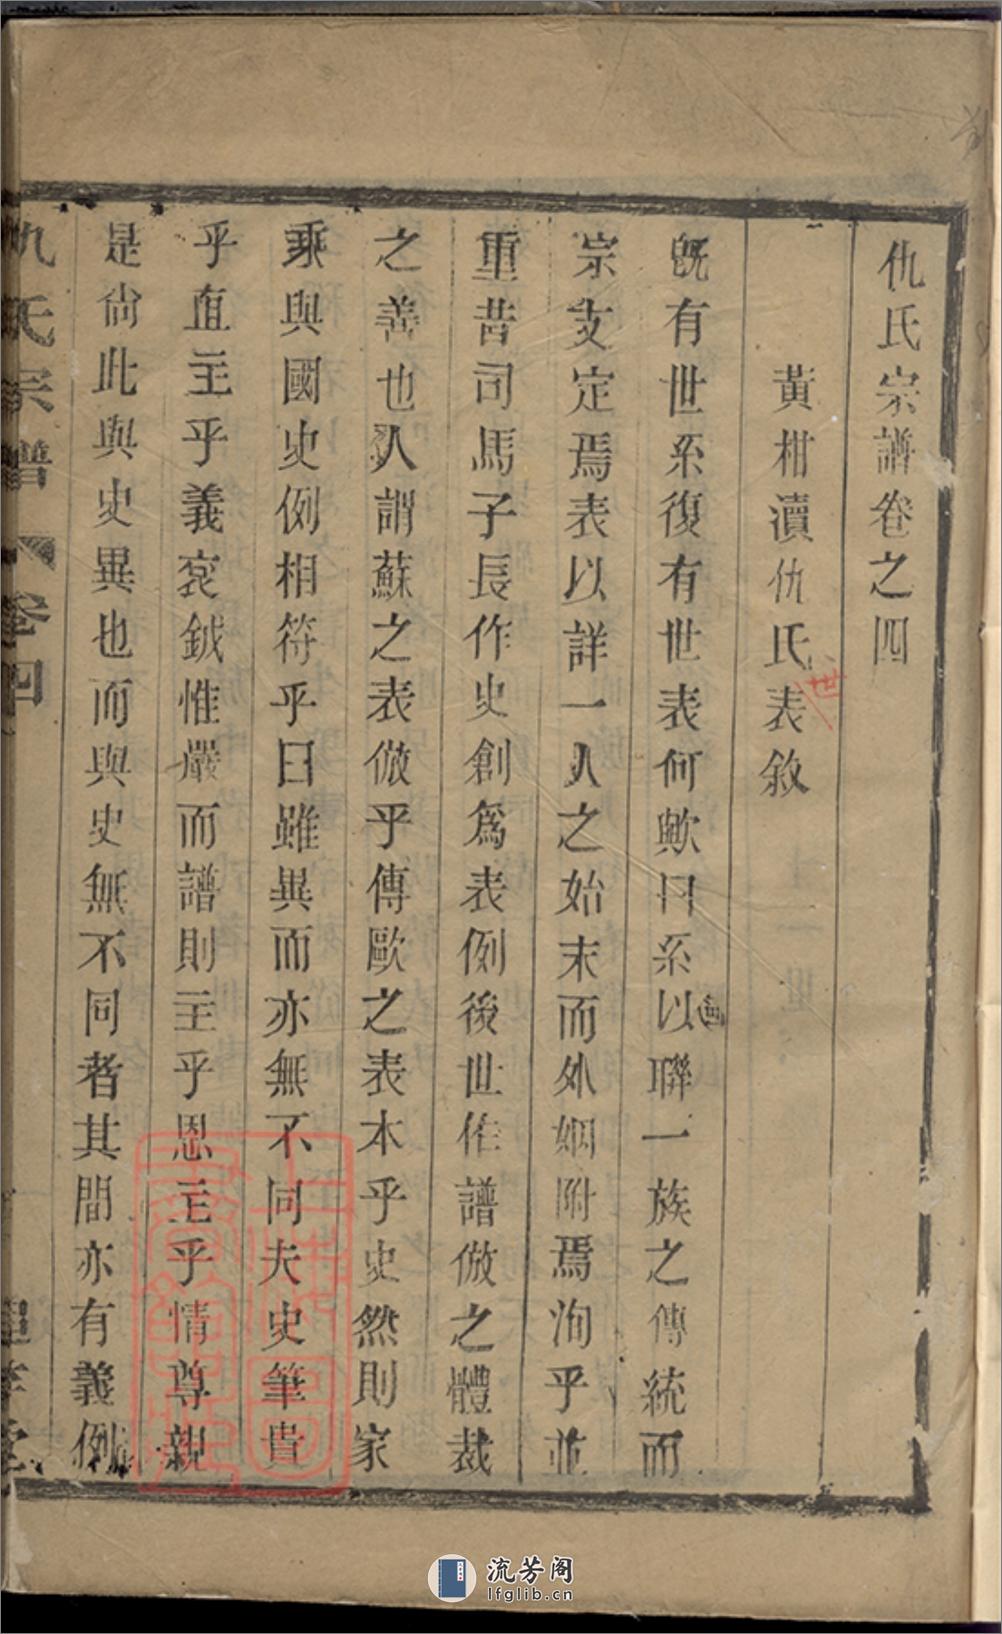 仇氏宗譜卷之四
黃柑瀆仇氏表敘
世
旣有世系復有世表何歟曰系以聯一族之傳統而
宗支定焉表以詳一人之始末而外姻附焉洵乎並
重昔司馬子長作史創爲表例後世作譜倣之體裁
之善也人謂蘇之表倣乎傳歐之表本乎史然則家
乘與國史例相符乎曰雖異而亦無不同夫史筆貴
乎直主乎義袞鉞惟嚴而譜則主乎恩主乎情尊親
是尙此與史異也而與史無不同者其間亦有義例
仇氏宗譜 卷四
上海圖書館藏
流芳阁
lfglib.cn